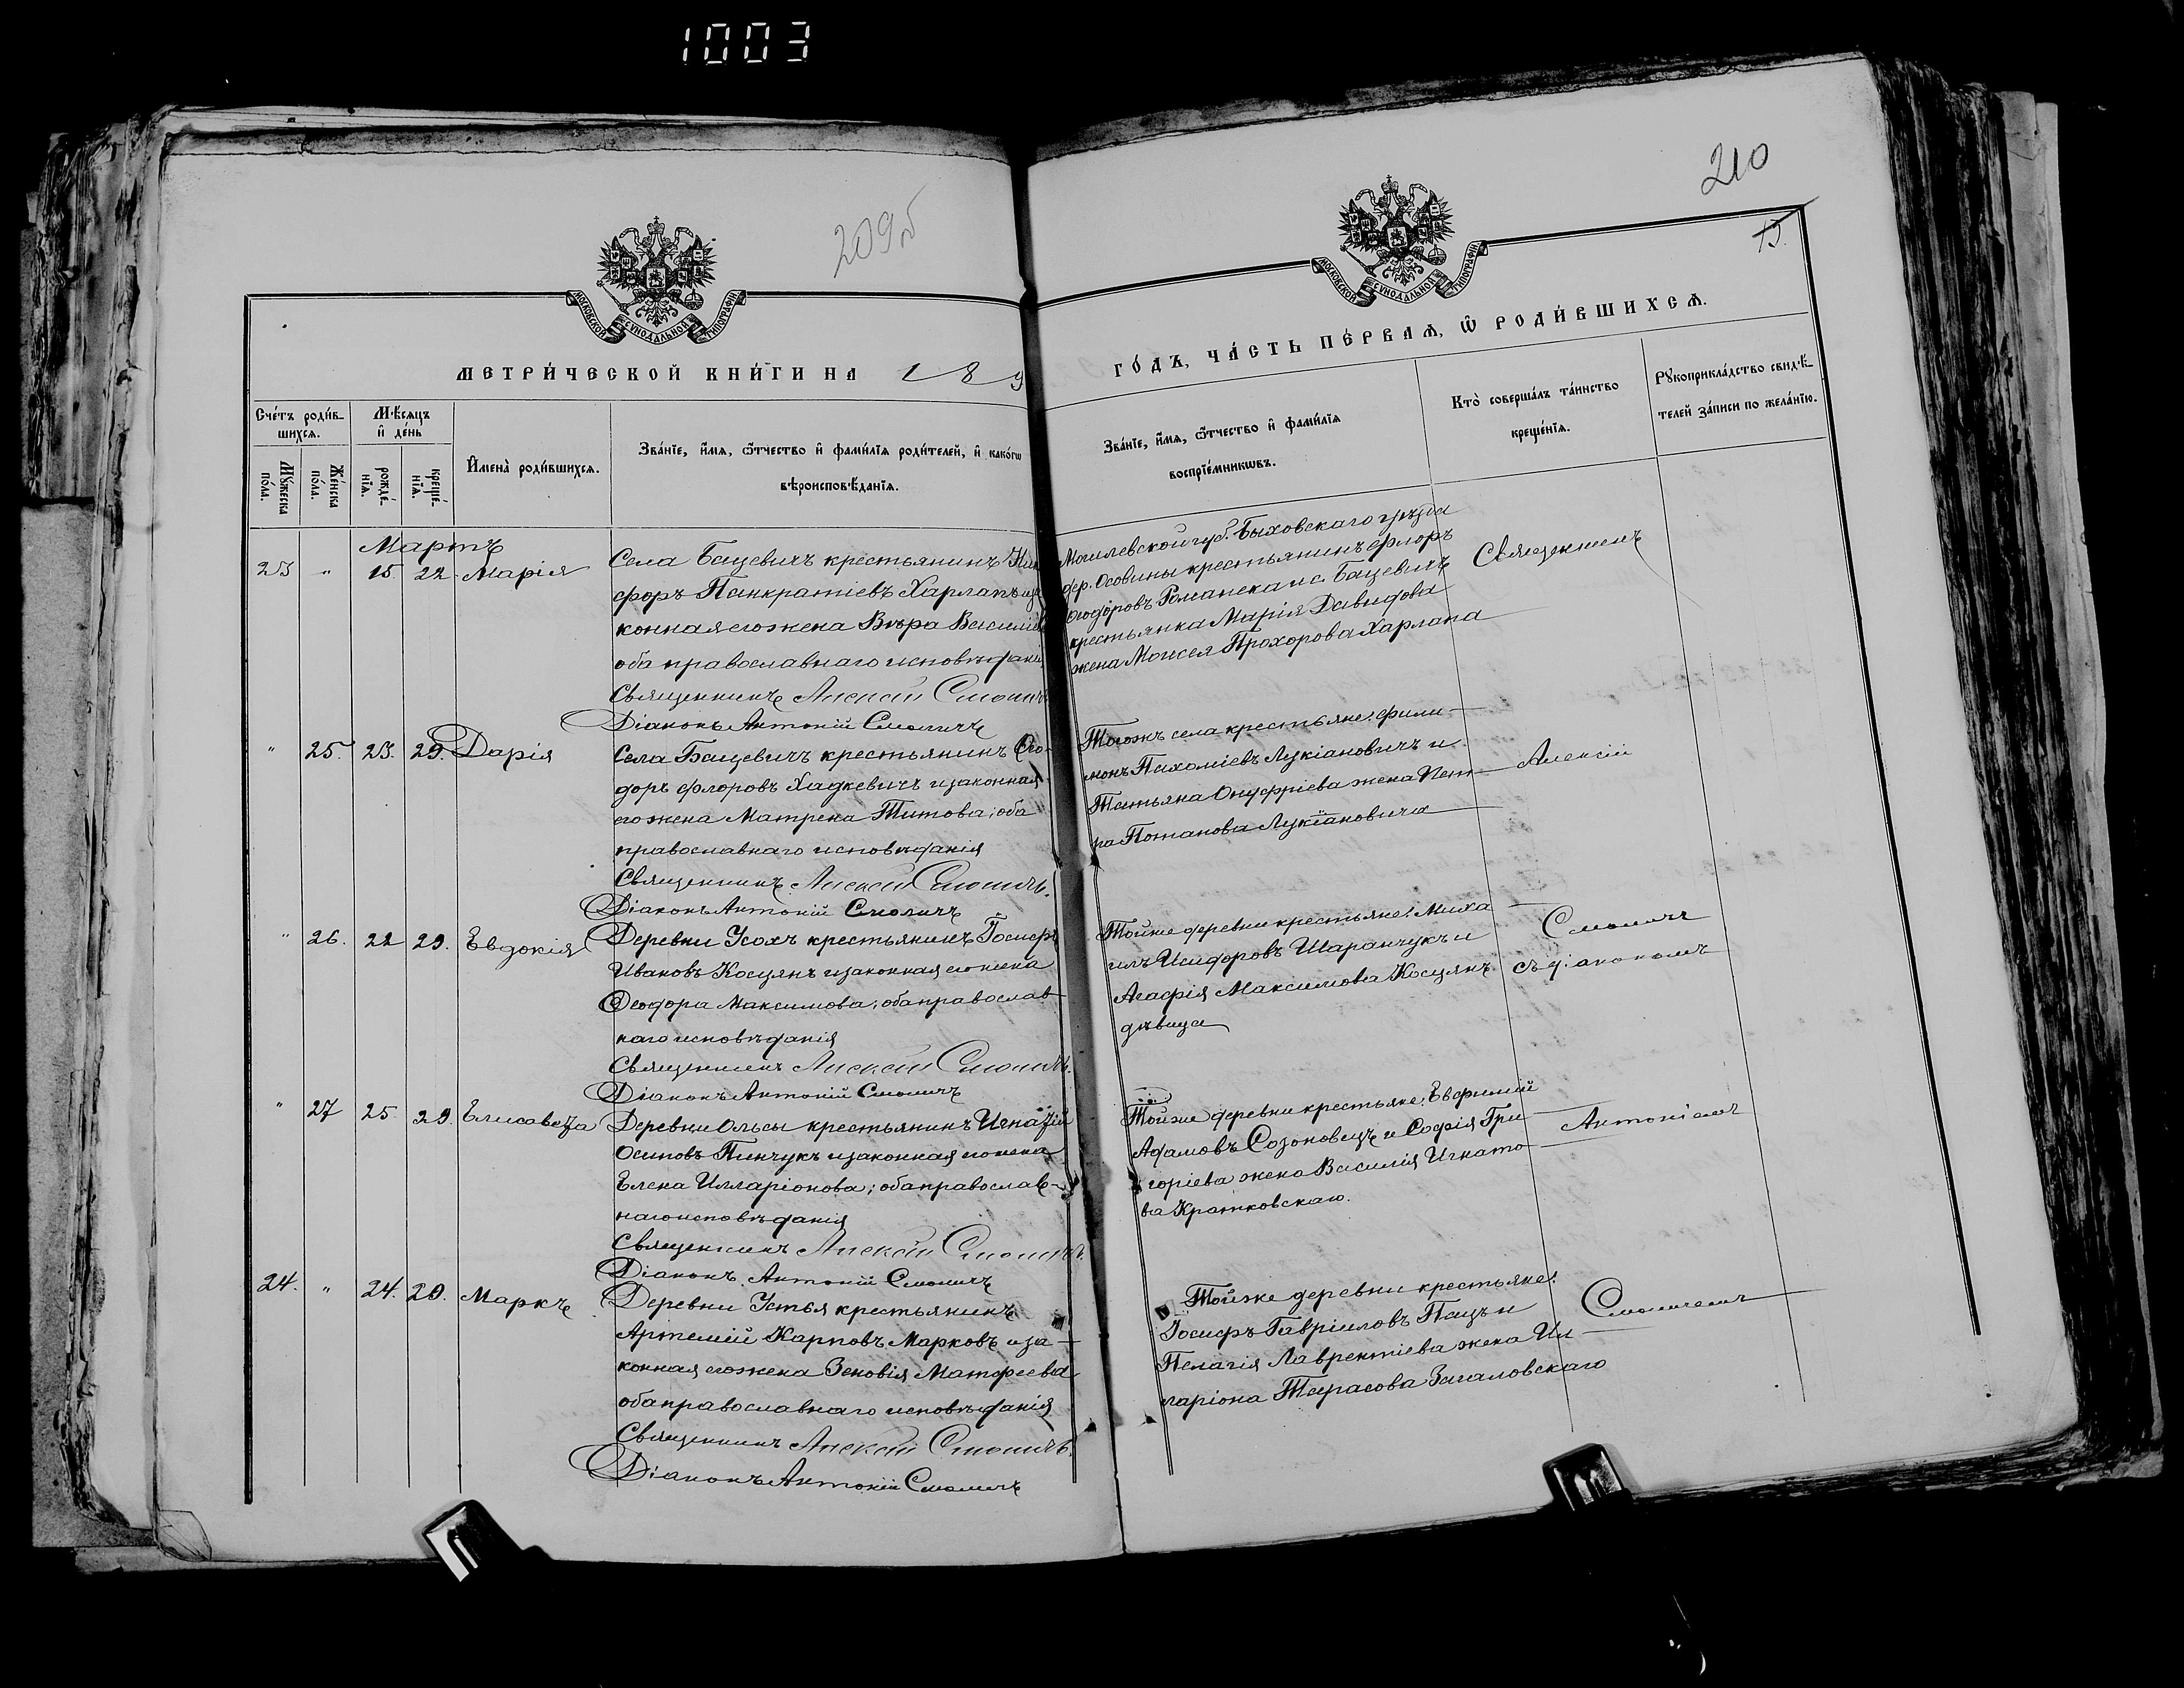 1003
209б
210
15.
МОСКОВСКОЙ СѴНОДАЛЬНОЙ ТИПОГРАФІИ
МОСКОВСКОЙ СѴНОДАЛЬНОЙ ТИПОГРАФІИ
МЕТРИ́ЧЕСКОЙ КНИ́ГИ НА 189
ГО́ДЪ, ЧА́СТЬ ПЕ́РВАѦ, Ѡ҆ РОДИ́ВШИХСѦ.
Сче́тъ роди́в-
шихсѧ.
Мѣ́сѧцъ
и҆ де́нь
Мꙋ́жеска
по́ла.
Же́нска
по́ла.
рожде́-
нїѧ.
креще́-
нїѧ.
И҆мена̀ роди́вшихсѧ.
Зва́нїе, и҆́мѧ, ѻ҆́тчество и҆ фами́лїѧ роди́телей, и҆ како́гѡ
вѣроисповѣ́данїѧ.
Зва́нїе, и҆́мѧ, ѻ҆́тчество и҆ фами́лїѧ
воспрїе́мникѡвъ.
Кто̀ соверша́лъ та́инство
креще́нїѧ.
Рꙋкоприкла́дство свидѣ́-
телей за́писи по жела́нїю.
Мартъ
23 " 15. 22. Марія
Села Бацевичъ крестьянинъ Ник
форъ Панкратіевъ Харлапъ изо
конная его жена Вѣра Василіе
оба православнаго исповѣдані
Священникъ Алексій Смолич
Діаконъ Антоній Смоличъ
Могилевской губ. Быховскаго уѣзда
дер. Осовины крестьянинъ Флоръ
Ѳеодоровъ Романека и с. Бацевичъ
крестьянка Марія Давидова
жена Моисея Прохорова Харлапа
Священникъ
" 25. 23. 29. Дарія
Села Бацевичъ крестьянинъ Ѳео-
доръ Флоровъ Хадкевичъ и законная
его жена Матрена Титова; оба
православнаго исповѣданія
Священникъ Алексій Смоличъ.
Діаконъ Антоній Смоличъ
Тогожъ села крестьяне: Фили-
монъ Пахоміевъ Лукіановичъ и
Татьяна Онуфріева жена Пет-
ра Потапова Лукіановича
Алексій
" 26. 22 29. Евдокія
Деревни Усохъ крестьянинъ Іосифъ
Ивановъ Косцянъ и законная его жена
Ѳеодора Максимова; оба православ-
наго исповѣданія
Священникъ Алексій Смоличъ.
Діаконъ Антоній Смоличъ
Тойже деревни крестьяне: Миха-
илъ Исидоровъ Шаранчукъ и
Агафія Максимова Косцянъ
дѣвица
Смоличъ
съ діакономъ
" 27 25 29. Елисавета
Деревни Ольсы крестьянинъ Игнатій
Осиповъ Пинчукъ и законная его жена
Елена Илларіонова; оба православ-
наго исповѣданія
Священникъ Алексій Смоличъ.
Діаконъ Антоній Смоличъ
Тойже деревни крестьяне: Евфимій
Адамовъ Созоновецъ и Софія Гри-
горіева жена Василія Игнато-
ва Кратковскаго.
Антоніемъ
24. " 24. 29. Маркъ
Деревни Устья крестьянинъ
Артемій Карповъ Марковъ и за-
конная его жена Зеновія Матѳеева
оба православнаго исповѣданія
Священникъ Алексій Смоличъ.
Діаконъ Антоній Смоличъ
Тойже деревни крестьяне:
Іосифъ Гавріиловъ Пацъ и
Пелагія Лаврентіева жена Ил-
ларіона Тарасова Загаловскаго
Смоличемъ